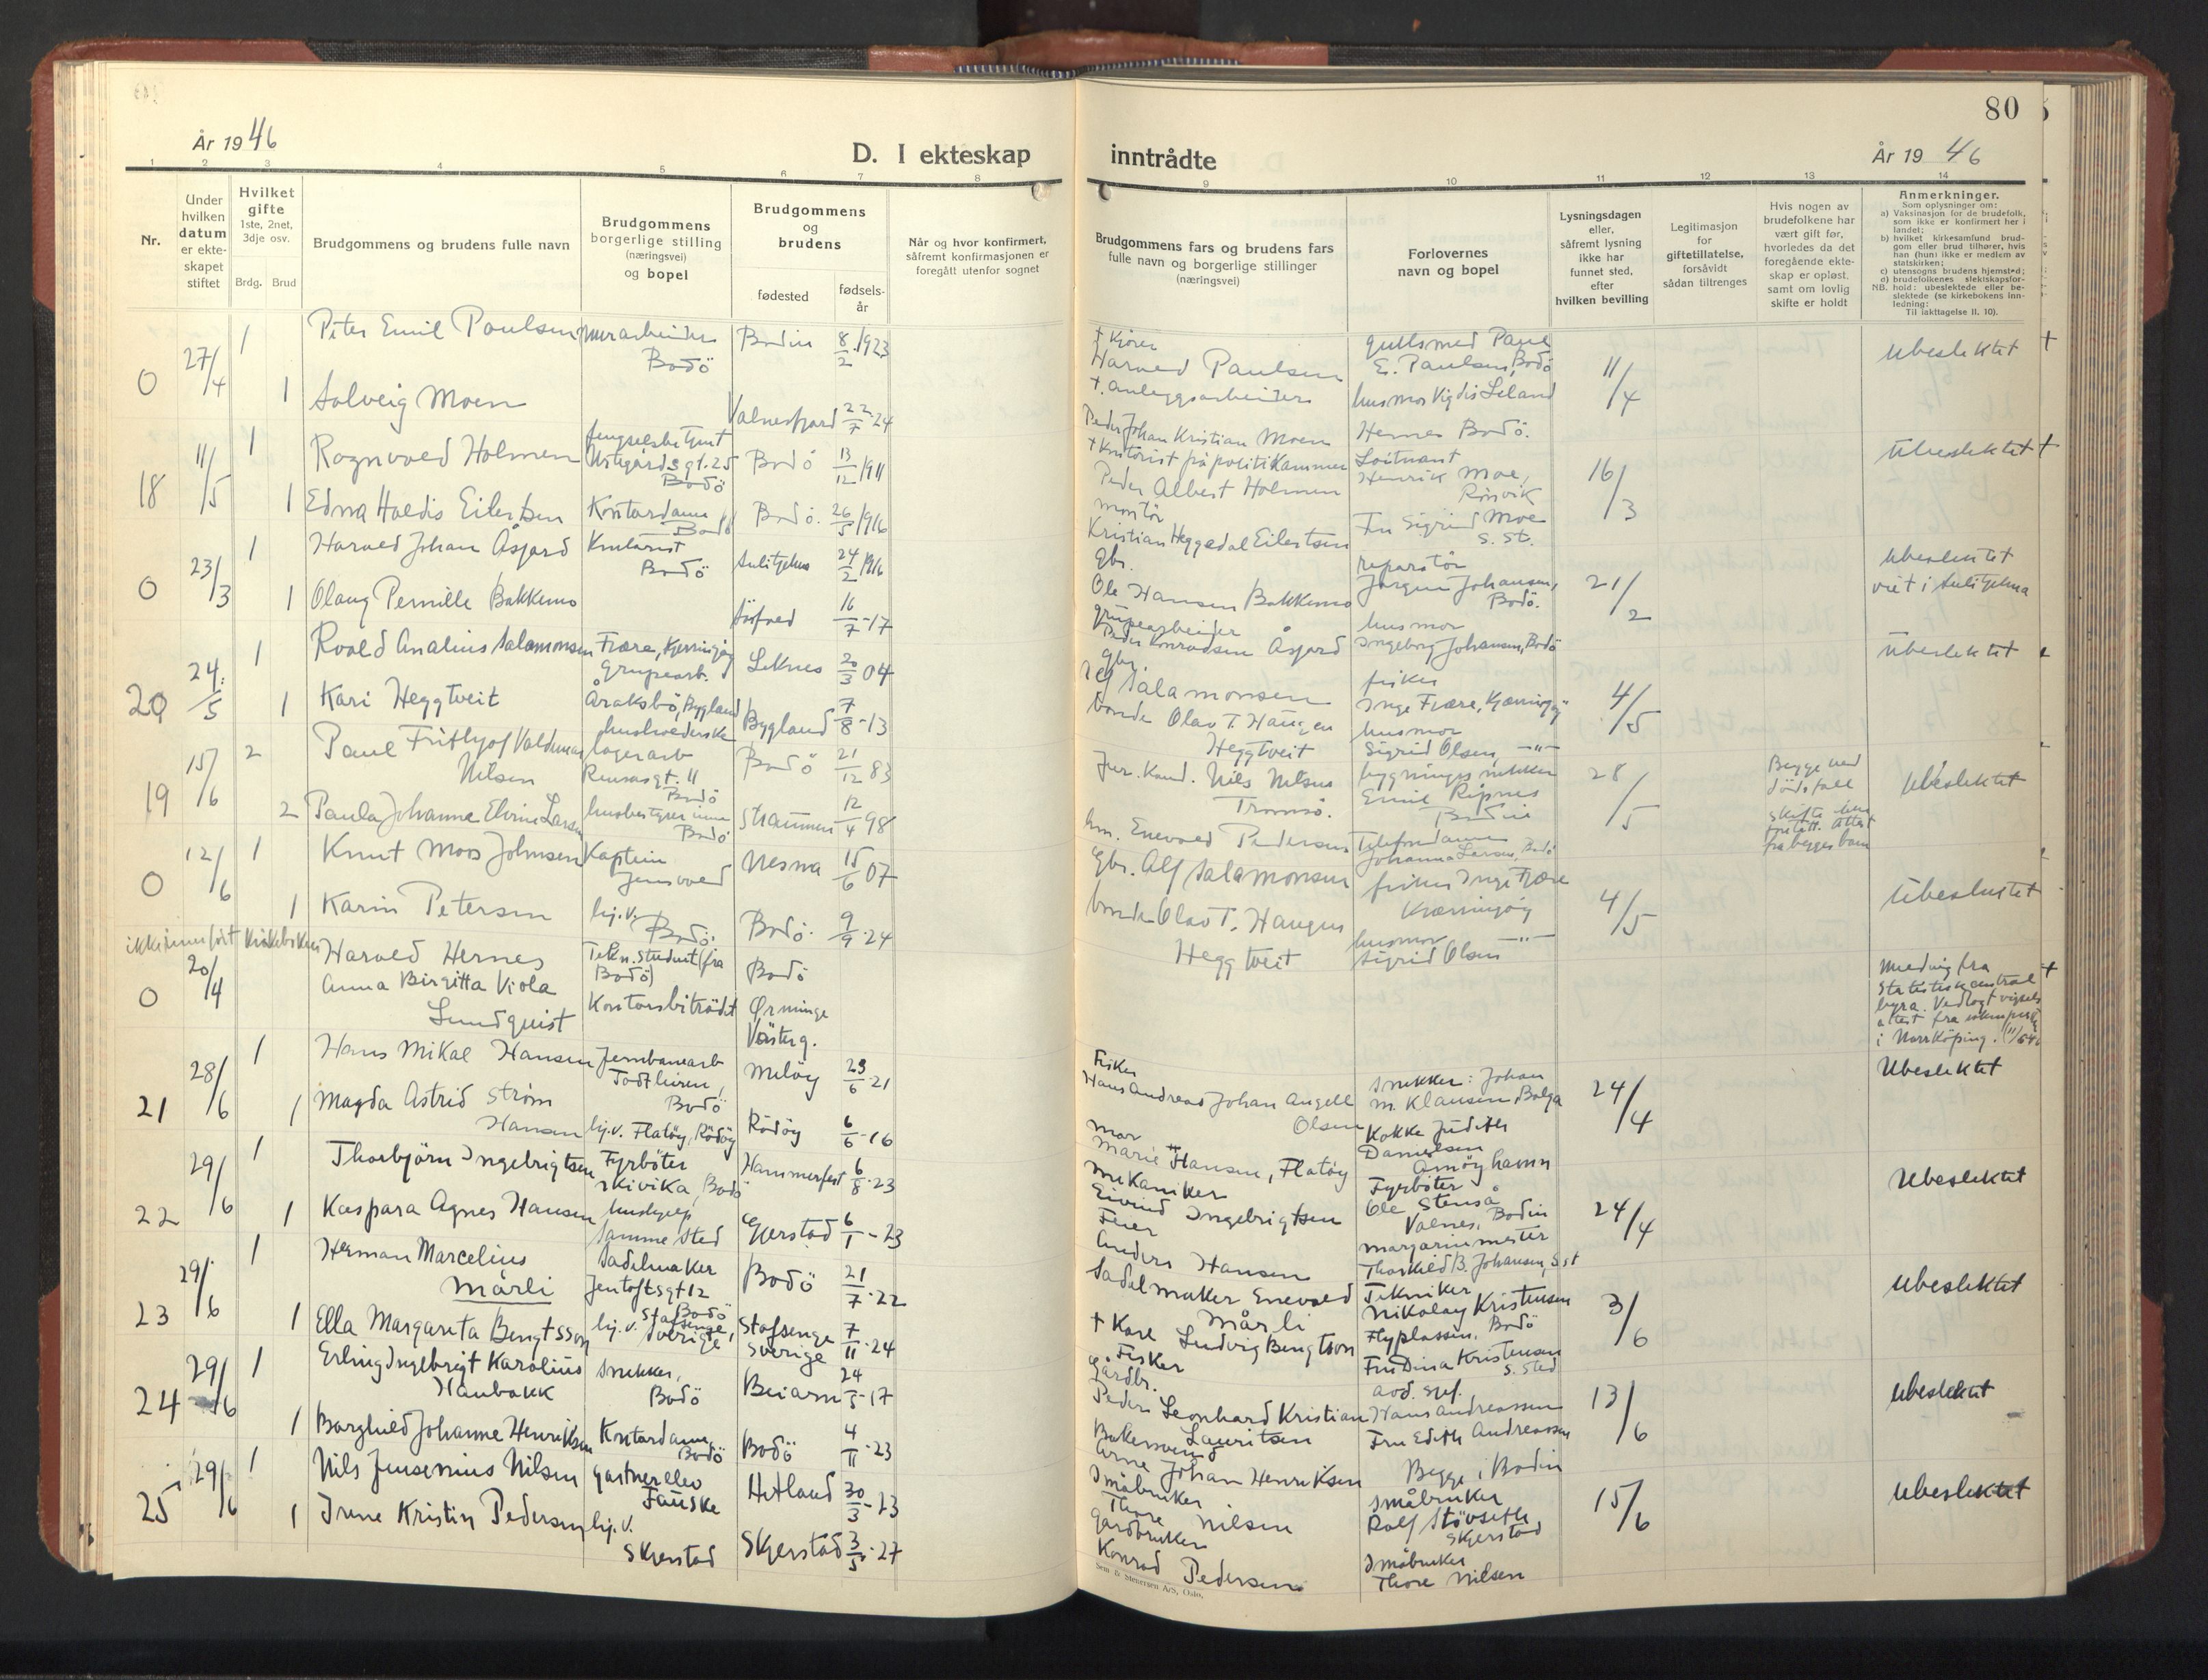 80
År 1946
D. I ekteskap
inntrådte
År 19 46
1
2
3
4
5
6
7
8
9
10
11
12
13
14
Nr.
Under
hvilken
datum
er ekte-
skapet
stiftet
Hvilket
gifte
1ste, 2net,
3dje osv.
Brdg. Brud
Brudgommens og brudens fulle navn
Brudgommens
borgerlige stilling
(næringsvei)
og bopel
Brudgommens
og
brudens
fødested
fødsels-
år
Når og hvor konfirmert,
såfremt konfirmasjonen er
foregått utenfor sognet
Brudgommens fars og brudens fars
fulle navn og borgerlige stillinger
(næringsvei)
Forlovernes
navn og bopel
Lysningsdagen
eller,
såfremt lysning
ikke har
funnet sted,
efter
hvilken bevilling
Legitimasjon
for
giftetillatelse,
forsåvidt
sådan tiltrenges
Hvis nogen av
brudefolkene har
vært gift før,
hvorledes da det
foregående ekte-
skap er opløst,
samt om lovlig
skifte er holdt
Anmerkninger.
Som oplysninger om:
a) Vaksinasjon for de brudefolk,
som ikke er konfirmert her i
landet;
b) hvilket kirkesamfund brud-
gom eller brud tilhører, hvis
han (hun) ikke er medlem av
statskirken;
c) utensogns brudens hjemsted;
d) brudefolkenes slektskapsfor-
NB. hold: ubeslektede eller be-
slektede (se kirkebokens inn-
ledning:
Til iakttagelse II. 10).
0 27/4 1 Peter Emil Paulsen murarbeider Bodö Bodin 8/2 1923
1 Solveig Moen Valnesfjord 22/7-24
† Kjörer
Harald Paulsen
† anleggsarbeider
Peder Johan Kristian Moen
gullsmed Paul
E. Paulsen, Bodö
husmor Vigdis Leland
Hernes Bodö.
11/4
Ubeslektet †
18 11/5 1 Ragnvald Holmen fengselsbetjent
gt. 25 Bodö Bodö 13/12 1911
1 Edna Haldis Eilertsen Kontordame Bodö Bodö. 26/5 1916
† Kontorist på politikammer
Peder Albert Holmen
montör
Kristian Heggedal Eilertsen
Loitnant
Henrik Moe,
Rönvik
Fru Sigrid Moe
s. st.
16/3
Ubeslektet †
0 23/3 1 Harald Johan Åsjord Kontorist Bodö Sulitjelma 24/2 1916
1 Olaug Pernille Bakkemo Sörfold 16/7-17
gbr.
Ole Hansen Bakkemo
grupearbeider
Peder Konradsen Åsjord
reparatör
Jörgen Johansen,
Bodö.
husmor
Ingeborg Johansen, Bodö
21/2
Ubeslektet
viet i Sulitjelma
20 24/5 1 Roald Analius Salamonsen Fjære, Kjerringöy
Grupearb. Leknes 20/3 04
1 Kari Heggtveit Åraksbö, Bygland
husholderske Bygland 7/8-13
gbr.
Alf Salamonsen
bonde Olav T. Haugen
Heggtveit
fisker
Inge Fjære, Kjerringöy
husmor
Sigrid Olsen, -"-
4/5
Ubeslektet
19 15/6 2 Paul Frithjof Valdemar
Nilsen lagerarb
Rensåsgt. 11
Bodö Bodö 21/12 83
2 Paula Johanne Elvine Larsen husbestyrerinne
Bodö Straumen 12/4 98
Jur. Kand. Nils Nilsen
Tromsö.
hm. Enevold Pedersen
bygningssnekker
Emil Ripnes
Bodin
Telefondame
Johanna Larsen, Bodö
28/5
Begge ved
dödsfall
Ubeslektet
0 12/6 1 Knut Moos Johnsen Kaptein Nesna 15/6 07
1 Karin Petersen hj.v. Bodö. Bodö. 9/9-24
gbr. Alf Salamonsen
bonde Olav T. Haugen
Heggtveit
fisker Inge Fjære
Kjærringöy
husmor -"-
Sigrid Olsen
4/5
Ubeslektet
ikke innfört kirkeboken
0 20/4 Harald Hernes Tekn. student (fra
Bodö) Bodö
Anna Birgitta Viola
Lundquist Kontorsbiträdet Ørminge
Västerg.
Melding fra
Statistisk central
byrå. Vedlagt vigsels
attest fra
i Norrköping.
†
21 28/6 1 Hans Mikal Hansen Jernbanearb
Bodö Melöy 29/6-21
1 Magda Astrid Ström
Hansen hj.v. Flatöy, Rödöy Rödöy 6/6-16
Fisker
Hans Andreas Johan Angell
Olsen
mor
Marie Hansen, Flatöy
Snekker: Johan
M. Klausen, Bolga
Kokke Judith
Danielsen
Åmöyhamn
24/4
Ubeslektet
22 29/6 1 Thorbjörn Ingebrigtsen Fyrböter
Skivika, Bodö Hammerfest 6/8-23
1 Kaspara Agnes Hansen hushjelp
Samme sted Gjerstad 6/1-23
Mekaniker
Eivind Ingebrigtsen
Feier
Anders Hansen
Fyrböter
Ole Stenså
Valnes, Bodin
Margarinmester
Thorkild B. Johansen, S.st
24/4
Ubeslektet
23 29/6 1 Herman Marcelius
Mårli Sadelmaker
Jentoftsgt 12
Bodö Bodö 21/7-22
1 Ella Margareta Bengtsson hj.v. Stafsenge,
Sverige Stafsenge
Sverige 7/11-24
Sadelmaker Enevold
Mårli
† Karl Ludvig Bengtson
Fisker
Tekniker
Nikolay Kristensen
Flyplassen, Bodö
Fru Dina Kristensen
S. Sted
3/6
Ubeslektet
24 29/6 1 Erling Ingebrigt Karolius
Haubakk Snekker,
Bodö Beiarn 24/5-17
1 Borghild Johanne Henriksen Kontordame
Bodö Bodö 4/11-23
Gårdbr.
Peder Leonhard Kristian
Lauritsen
Bakersvend
Arne Johan Henriksen
avd. sjef.
Hans Andreassen
Fru Edith Andreassen
Begge i Bodin
13/6
Ubeslektet
25 29/6 1 Nils Jensenius Nilsen gartnerelev
Fauske Hetland 30/3-23
1 Irene Kristin Pedersen hj.v.
Skjerstad Skjerstad 3/5-27
Småbruker
Thore Nilsen
Gårdbruker
Konrad Pedersen
Småbruker
Rolf Stövseth
Skjerstad
Småbruker
Thore Nilsen
15/6
Ubeslektet
Sem & Stenersen A/S, Oslo.